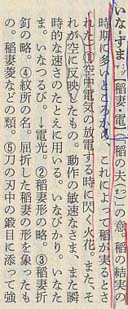 いな‐ずま‥ヅマ【稲妻・電】(稲の夫(つま)の意。稲の結実の
時期に多いところから、これによって稲が実るとさ
れた)①空中電気の放電する時に閃く火花。また、そ
れが空に反映したもの。動作の敏速なさま、また瞬
時的な速さのたとえに用いる。いなびかり。いなた
ま。いなつるび。→電光。②稲妻形の略。③稲妻折
釘の略。④紋所の名。屈折した稲妻の形を象ったも
の。稲妻菱などの類。⑤刀の刃中の鍛目に添て強